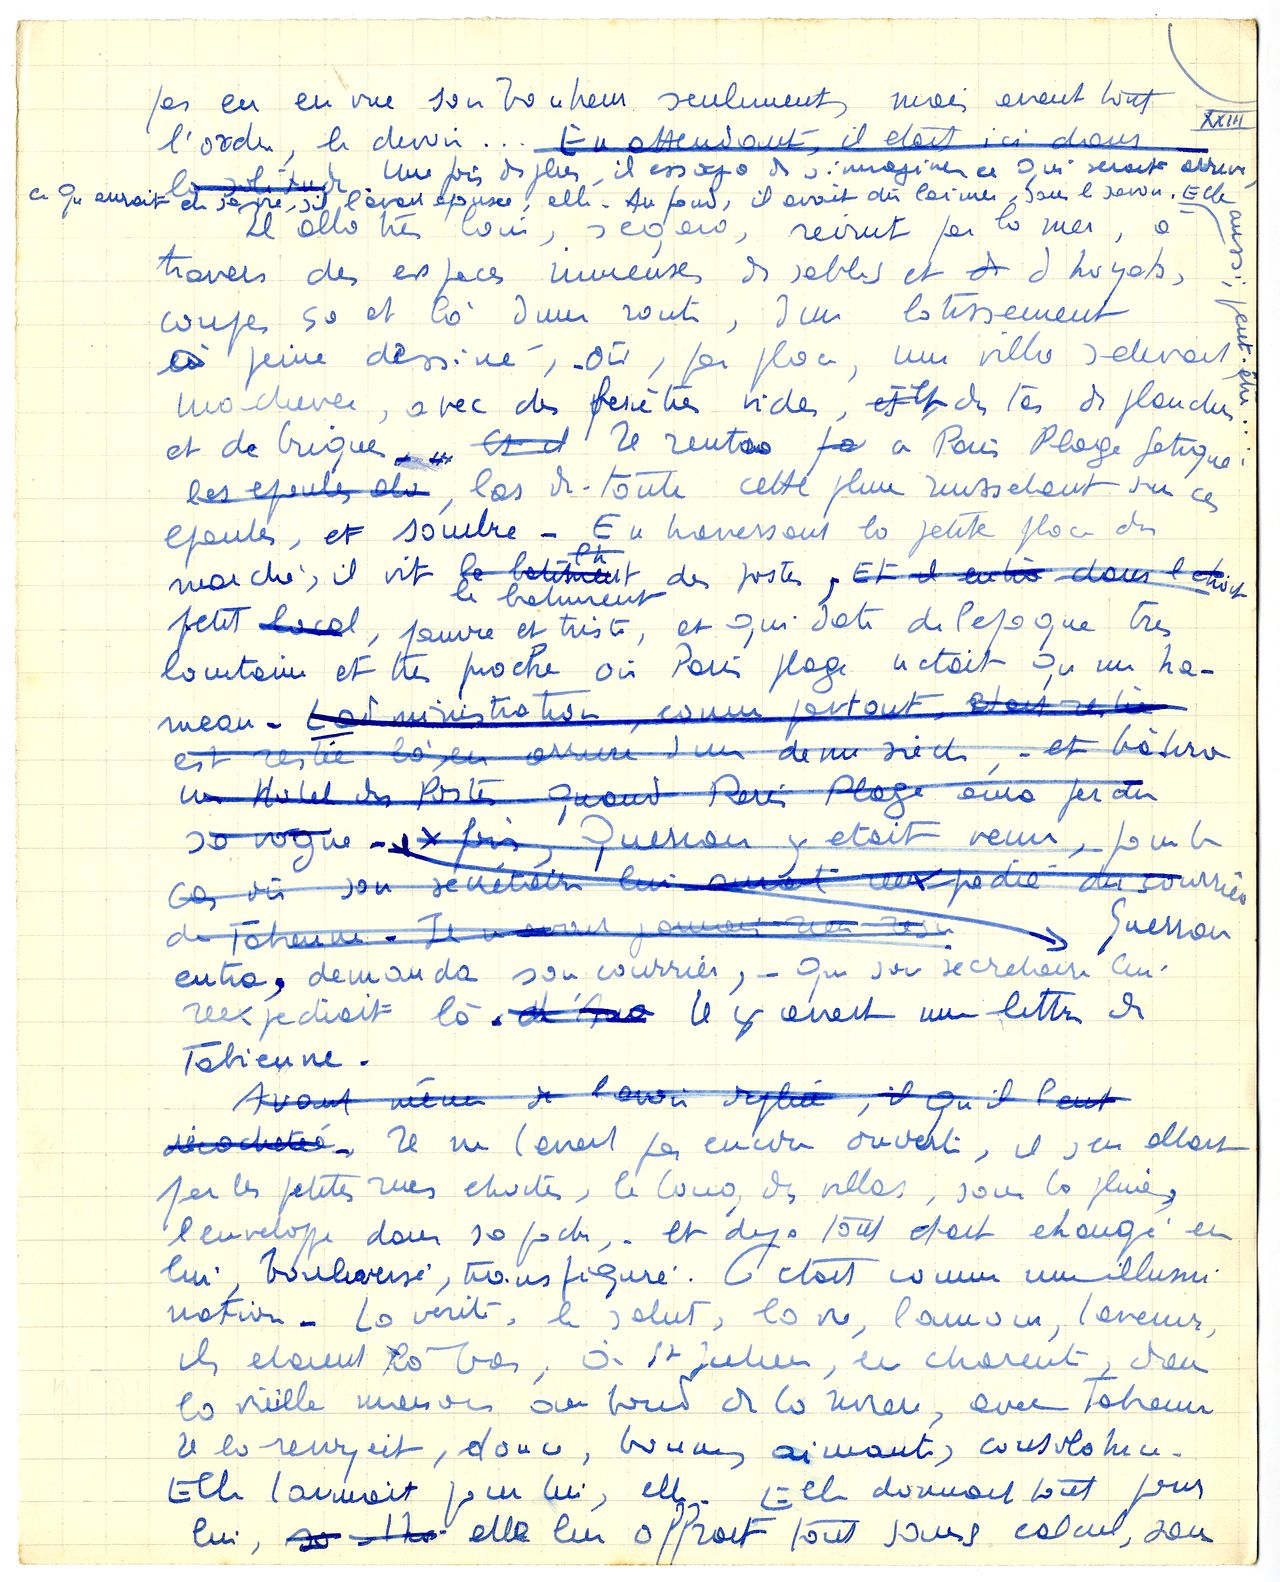 pas eu en vue son bonheur seulement, mais avant tout
XXIII
l'ordre, le devoir... En attendant, il était ici dans
la solitude Une fois de plus, il essaya de s'imaginer ce qui serait arrivé,
ce qu'aurait été sa vie, s'il l'avait épousée, elle. Au fond, il avait dû l'aimer, sans le savoir. Elle
aussi, peut-être...
Il alla très loin, s'égara, revint par la mer, à
travers des espaces immenses de sables et d d'hoyats,
coupés ça et là d'une route, d'un lotissement
à peine dessiné, où, par place, une villa s'élevait
inachevée, avec des fenêtres vides, et des tas de planches
et de briques... Et il Il rentra à Paris Plage fatigué
les épaules, las de toute cette pluie ruisselant sur ces
épaules, et sombre - En traversant la petite place du
marché, il vit le bâtiment des postes, Et il entra dans l'étroit
le petit bâtiment
petit local, pauvre et triste, et qui date de l'époque très
lointaine et très proche où Paris plage n'était qu'un ha-
meau - L'administration, comme partout, était restée
est restée là, en arrière d'un demi siècle, - et bâtira
un Hôtel des Postes quand Paris Plage aura perdu
sa vogue - fois, Guessan y était venu, pour le
cas où son secrétaire lui aurait réexpédié du courrier
de Fabienne - Il n'avait jamais rien reçu Guessan
entra, demanda son courrier, - que son secrétaire lui
réexpédiait là. Il y avait une lettre de
Fabienne -
Avant même de l'avoir dépliée, qu'il l'eut
décachetée - Il ne l'avait pas encore ouverte, il s'en allait
par les petites rues étroites, le long des villas, sous la pluie,
l'enveloppe dans sa poche, - et déjà tout était changé en
lui, bouleversé, transfiguré. C'était comme une illumi
nation - La vérité, le salut, la vie, l'amour, l'avenir,
ils étaient là-bas, à St Julien, en charente, dans
la vieille maison au bord de la rivière, avec Fabienne
Il la revoyait, douce, bonne, aimante, consolatrice -
Elle l'aimait pour lui, elle - Elle donnait tout pour
lui, elle lui offrait tout sans calcul, sans